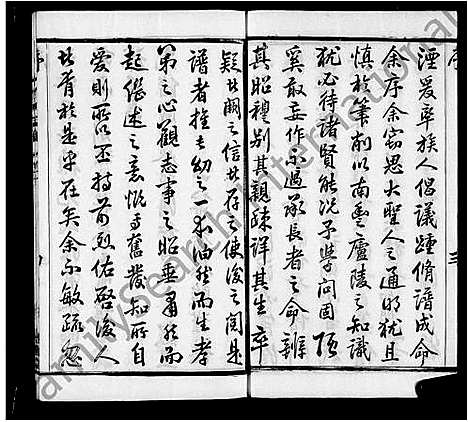 序
湮爰率族人倡議踵脩譜成命
余序余窃思大聖人之通明犹且
慎於筆削以南豊廬陵之知識
犹必待諸賢能况予學问固
奚敢妄作不過承長者之命辨
其昭穆别其親疎詳其生卒
疑者闕之信者存之使後之閱是
譜者推長幼之一本油然而生孝
弟之心觀志事之昭垂肅然而
起继述之意慨焉奮發知所自
爱則所以丕持前烈佑啓後人
者胥於是乎在矣余不敏疏忽
三